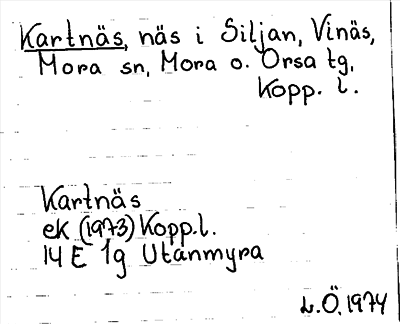 Kartnäs, näs i Siljan, Vinäs,
Mora sn, Mora o. Orsa tg,
Kopp. l.
Kartnäs
ek (1973) Kopp.l.
14 E 1g Utanmyra
L.Ö. 1974